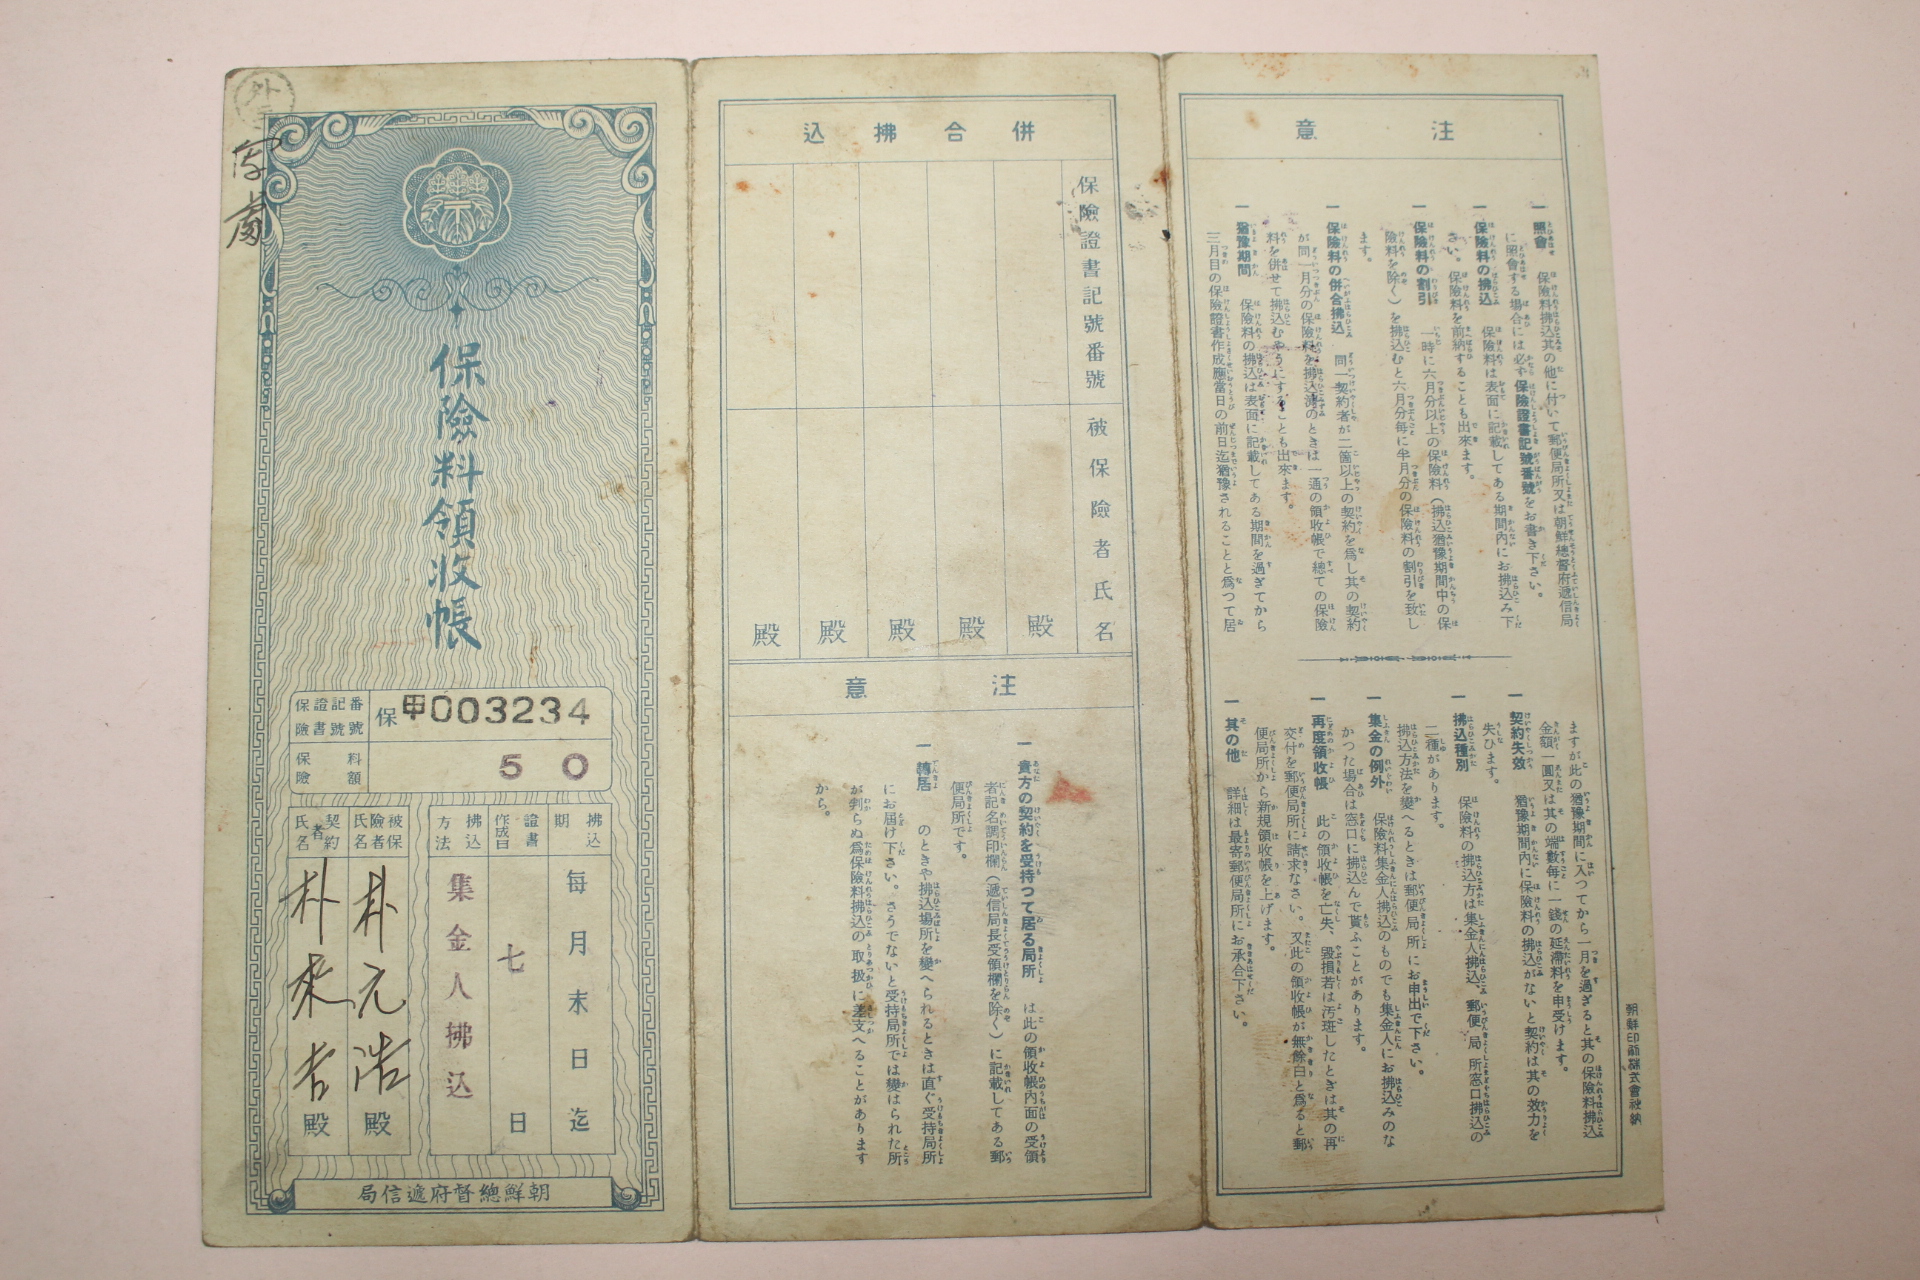 外
保險料領收帳
保險證書記號番號
保甲003234
保險料額
50
拂込期
每月末日迄
證書作成日
七日
拂込方法
集金人拂込
被保險者氏名
朴元浩殿
契約者氏名
朴來吉殿
朝鮮總督府遞信局
併合拂込
保險證書記號番號
被保險者氏名
殿
殿
殿
殿
殿
注意
一 貴方の契約を受持つて居る局所 は此の領收帳內面の受領
者記名調印欄(遞信局長受領欄を除く)に記載してある郵
便局所です。
一 轉居 のときや拂込場所を變へられるときは直ぐ受持局所
にお屆け下さい。さうでないと受持局所では變はられた所
が判らぬ爲保險料拂込の取扱に差支へることがあります
から。
注意
一 照會 保險料拂込其の他に付いて郵便局所又は朝鮮總督府遞信局
に照會する場合には必ず保險證書記號番號をお書き下さい。
一 保險料の拂込 保險料は表面に記載してある期間內にお拂込み下
さい。保險料を前納することも出來ます。
一 保險料の割引 一時に六月分以上の保險料(拂込猶豫期間中の保
險料を除く)を拂込むと六月分每に半月分の保險料の割引を致し
ます。
一 保險料の併合拂込 同一契約者が二箇以上の契約を爲し其の契約
が同一月分の保險料を拂込濟のときは一通の領收帳で總ての保險
料を併せて拂込むやうにすることも出來ます。
一 猶豫期間 保險料の拂込は表面に記載してある期間を過ぎてから
三月目の保險證書作成應當日の前日迄猶豫されることと爲つて居
ますが此の猶豫期間に入つてから一月を過ぎると其の保險料拂込
金額一圓又は其の端數每に一錢の延滯料を申受けます。
一 契約失效 猶豫期間內に保險料の拂込がないと契約は其の效力を
失ひます。
一 拂込種別 保險料の拂込方は集金人拂込、郵便局所窓口拂込の
二種があります。
拂込方法を變へるときは郵便局所にお申出で下さい。
一 集金の例外 保險料集金人拂込のものでも集金人にお拂込みのな
かつた場合は窓口に拂込んで貰ふことがあります。
一 再度領收帳 此の領收帳を亡失、毀損若は汚斑したときは其の再
交付を郵便局所に請求なさい。又此の領收帳が無餘白と爲ると郵
便局所から新規領收帳を上げます。
一 其の他 詳細は最寄郵便局所にお承合下さい。
朝鮮印刷株式會社納